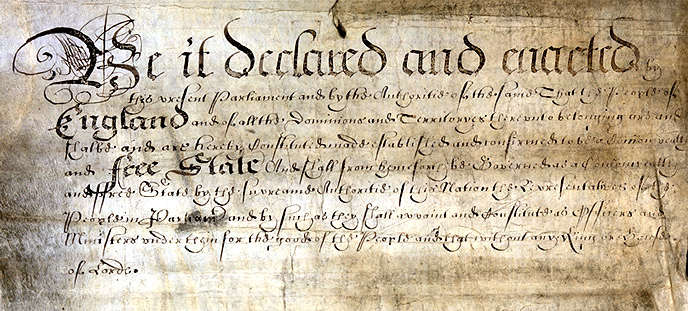 Be it declared and enacted by
this present Parliament and by the Authoritie of the same That the People of
England and of all the Dominions and Territoryes thereunto belonging are and
shalbe and are hereby Constituted made established and confirmed to be a Commonwealth
and free State And shall from henceforth be Governed as a Commonwealth
and Free State by the supreame Authoritie of this Nation the Representatives of the
People in Parliamt and by such as they shall appoint and Constitute as Officers and
Ministers under them for the good of the People and that without any King or House
of Lords.